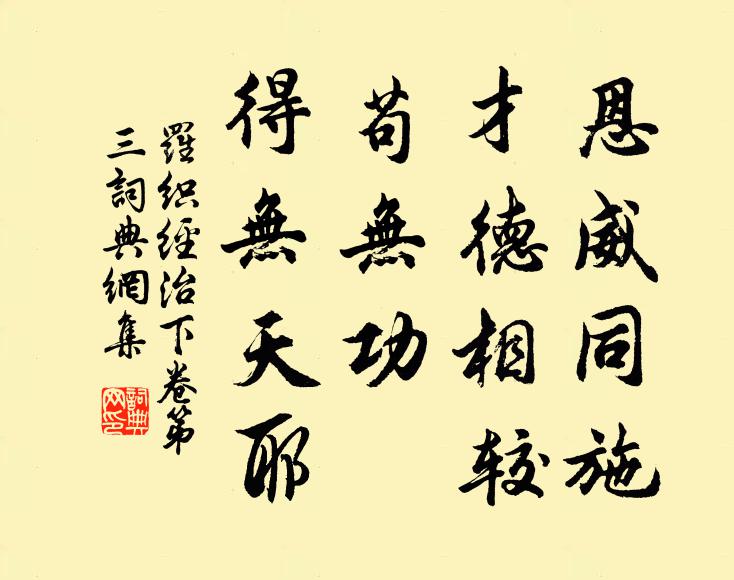 恩威同施
才德相較
苟無功
得無天耶
羅织經治下卷第
三詞典網集
詞典
网印